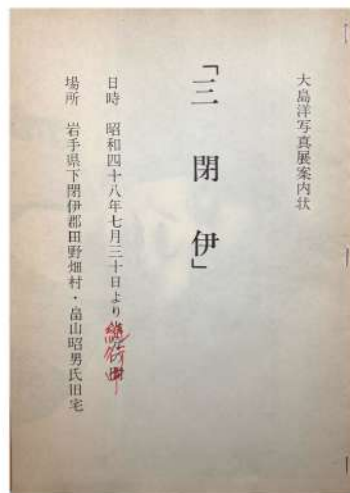 大島洋写真展案内状
「三閉伊」
日時 昭和四十八年七月三十日より
場所 岩手県下閉伊郡田野畑村・畠山昭男氏旧宅